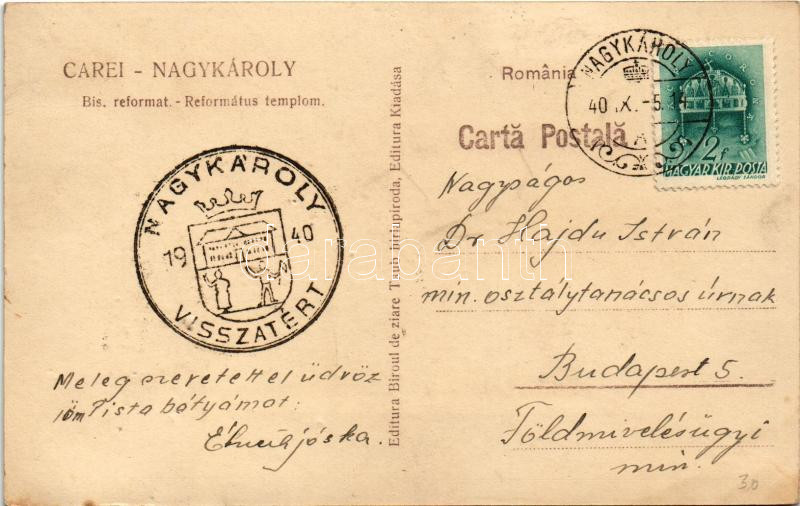 CAREI - NAGYKÁROLY
Bis. reformat. - Református templom.
NAGYKÁROLY
1940
VISSZATÉRT
Meleg szeretettel üdvöz
löm Pista bátyámat:
jóska.
Editura Biroul de ziare Tsub tiriupiroda, Editura Kiadása
România
Cartă Postală
NAGYKÁROLY
40 .X. -5.
2f
MAGYAR KIR. POSTA
LÉGRÁDY SÁNDOR
Nagyságos
Dr. Hajdu István
min. osztálytanácsos úrnak
Budapest 5.
Földmivelésügyi
min.
30
darabanth